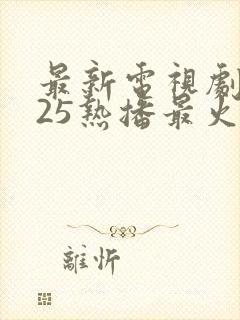 最新電視劇
25熱播最火
離忻